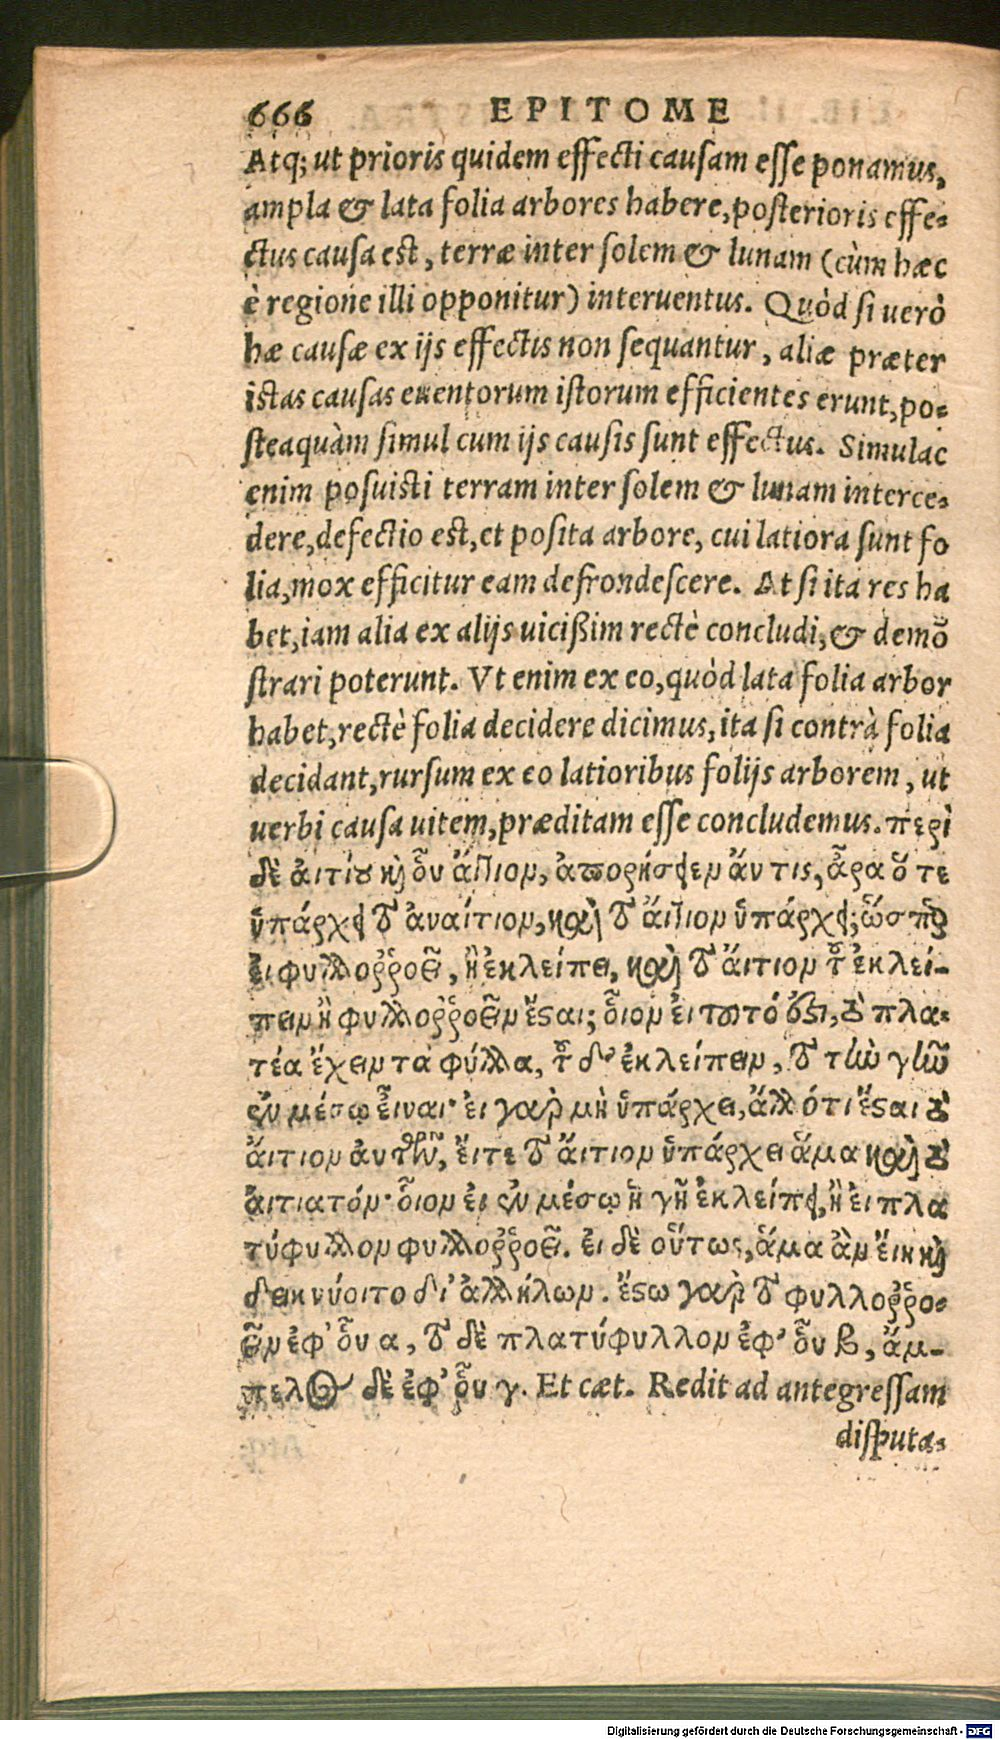 666 EPITOME
Atq; ut prioris quidem effecti causam esse ponamus,
ampla & lata folia arbores habere, posterioris effe-
ctus causa est, terræ inter solem & lunam (cùm hæc
è regione illi opponitur) interuentus. Quòd si uerò
hæ causæ ex ijs effectis non sequantur, aliæ præter
istas causas euentorum istorum efficientes erunt, po-
steaquàm simul cum ijs causis sunt effectus. Simulac
enim posuisti terram inter solem & lunam interce-
dere, defectio est, et posita arbore, cui latiora sunt fo
lia, mox efficitur eam defrondescere. At si ita res ha
bet, iam alia ex alijs uicißim rectè concludi, & demō
strari poterunt. Vt enim ex eo, quòd lata folia arbor
habet, rectè folia decidere dicimus, ita si contrà folia
decidant, rursum ex eo latioribus folijs arborem, ut
uerbi causa uitem, præditam esse concludemus. περὶ
δὲ ἀιτίου καὶ οὗ ἄιτιον, ἀπορήσειεν ἄν τις, ἆρα ὅτε
ὑπάρχει τὸ ἀναίτιον, καὶ τὸ ἄιτιον ὑπάρχει; ὥσπερ
ἐι φυλλοῤῥοεῖ, ἢ ἐκλείπει, καὶ τὸ ἄιτιον τοῦ ἐκλεί-
πειν ἢ φυλλοῤῥοεῖν ἔσαι; οἷον ἐι τοῦτό ἐστι, τὸ πλα-
τέα ἔχειν τὰ φύλλα, τοῦ δ' ἐκλείπειν, τὸ τὴν γῆν
ἐν μέσῳ εἶναι· ἐι γὰρ μὴ ὑπάρχει, ἄλλό τι ἔσαι τὸ
ἄιτιον ἀυτῶν, ἔιτε τὸ ἄιτιον ὑπάρχει ἅμα καὶ τὸ
ἀιτιατόν· οἷον ἐι ἐν μέσῳ ἡ γῆ ἐκλείπει, ἢ ἐι πλα
τύφυλλον φυλλοῤῥοεῖ. ἐι δὲ οὕτως, ἅμα ἂν ἔιη καὶ
δεικνύοιτο δι' ἀλλήλων. ἔσω γὰρ τὸ φυλλοῤῥο-
εῖν ἐφ' οὗ α, τὸ δὲ πλατύφυλλον ἐφ' οὗ β, ἄμ-
πελος δὲ ἐφ' οὗ γ. Et cæt. Redit ad antegressam
disputa-
Digitalisierung gefördert durch die Deutsche Forschungsgemeinschaft - DFG